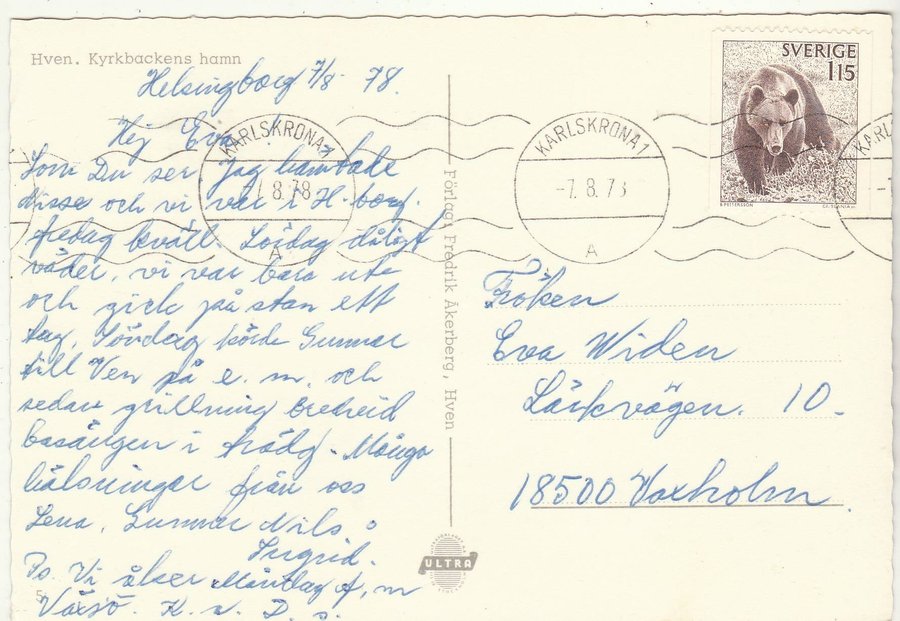 Hven. Kyrkbackens hamn
Helsingborg 7/8 78.
Hej Eva!
Som Du ser jag hämtade
Nisse och vi var i H-borg.
fredag kväll. Lördag dåligt
väder, vi var bara ute
och gick på stan ett
tag. Söndag körde Gunnar
till Ven på e.m. och
sedan grillning bredvid
bassängen i trädg. Många
hälsningar från oss
Lena, Gunnar Nils o
Ingrid.
Ps. Vi åker Måndag f.m
Växsö. K.
5
Förlag: Fredrik Åkerberg, Hven
ULTRA
SVERIGE
1 15
B PETTERSSON
KARLSKRONA 1
-7. 8.78
A
KARLSKRONA 1
-7. 8.78
A
KARLS
Fröken
Eva Widen
Lärkvägen. 10.
18500 Vaxholm.